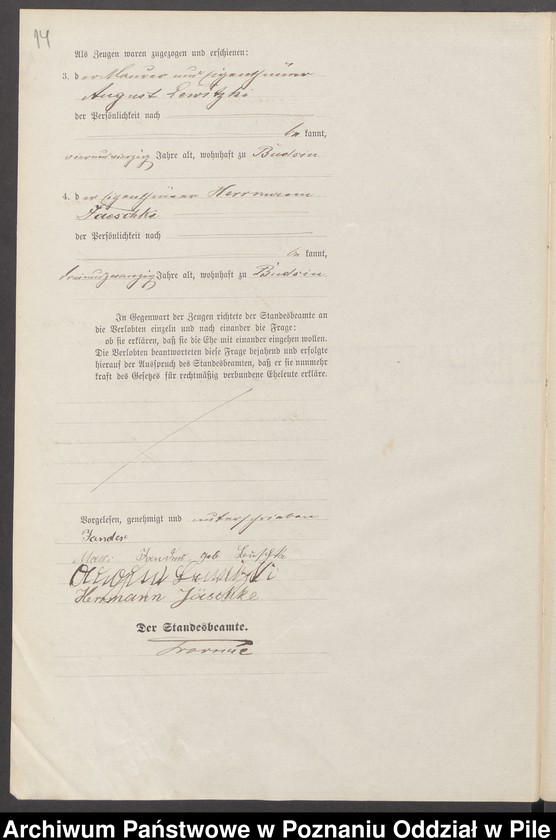 14
Als Zeugen waren zugezogen und erschienen:
3. der Maurer und Eigenthümer
August Lewitzki
der Persönlichkeit nach
bekannt,
vierundvierzig Jahre alt, wohnhaft zu Budsin
4. der Eigenthümer Herrmann
Jaeschke
der Persönlichkeit nach
bekannt,
Jahre alt, wohnhaft zu Budsin
In Gegenwart der Zeugen richtete der Standesbeamte an
die Verlobten einzeln und nach einander die Frage:
ob sie erklären, daß sie die Ehe mit einander eingehen wollen.
Die Verlobten beantworteten diese Frage bejahend und erfolgte
hierauf der Ausspruch des Standesbeamten, daß er sie nunmehr
kraft des Gesetzes für rechtmäßig verbundene Eheleute erkläre.
Vorgelesen, genehmigt und unterschrieben
Zander
geb
Herrmann Jäschke
Der Standesbeamte.
Archiwum Państwowe w Poznaniu Oddział w Pile